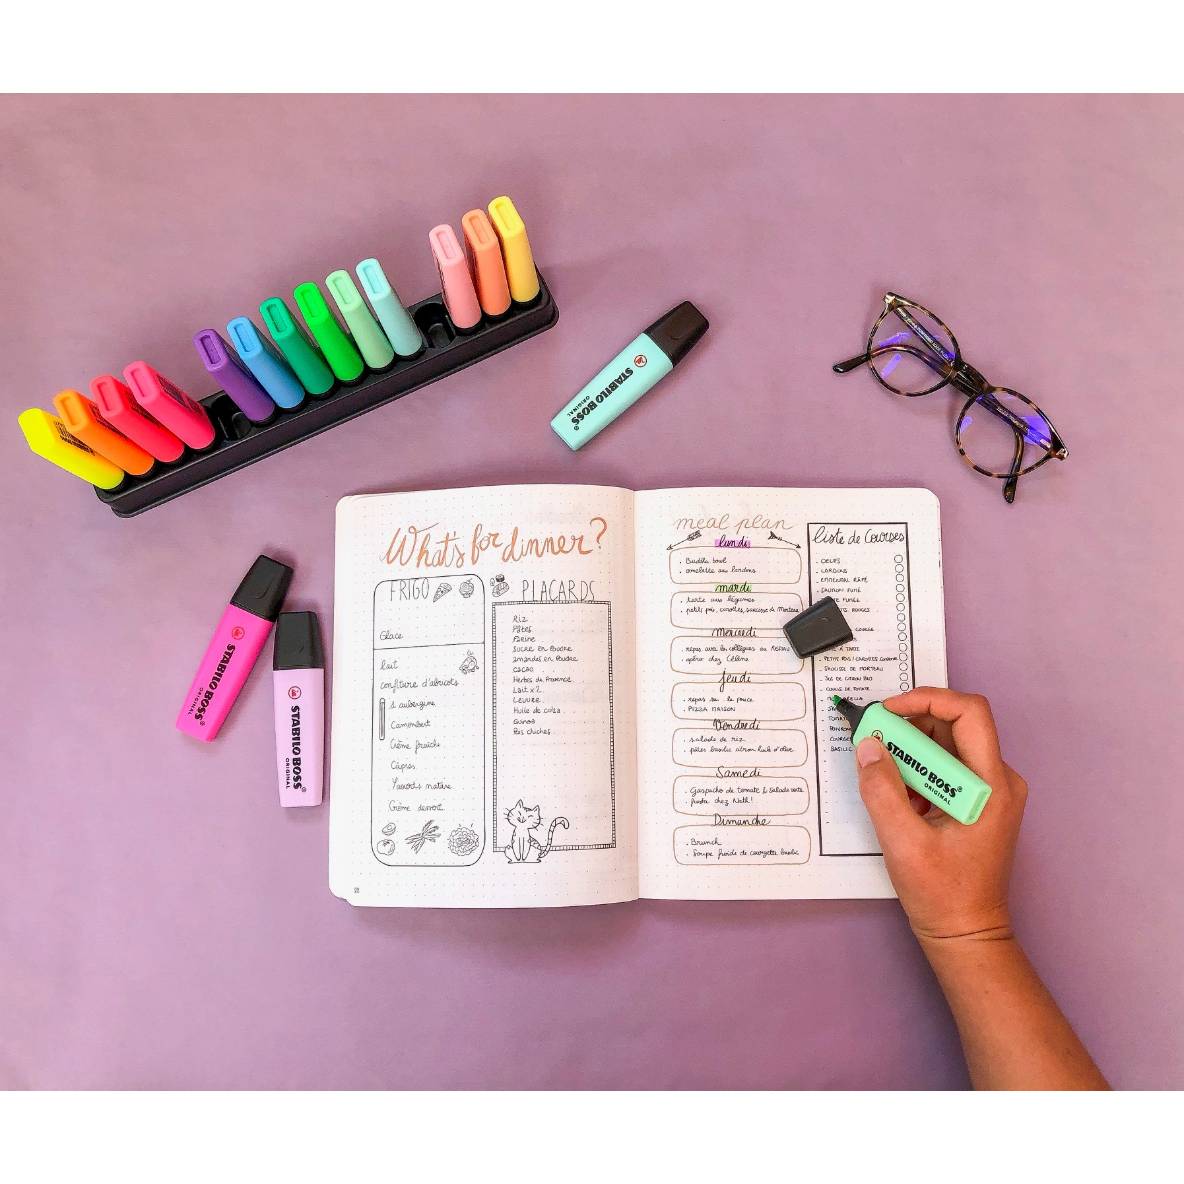 What's for dinner?
FRIGO
Glace
lait
confiture d'abricots
1 aubergine
Camembert
Crème fraîche
Câpres
Yaourts nature
Crème dessert
PLACARDS
Riz
Pâtes
Farine
Sucre en poudre
Amandes en poudre
Cacao
Herbes de Provence
Lait x 2
Levure
Huile de colza
Quinoa
Pois chiches
meal plan
lundi
. Buddha bowl
. omelette aux lardons
mardi
. tarte aux légumes
. petits pois, carottes, saucisse de Morteau
Mercredi
. repas avec les collègues au
. apéro chez Céline
Jeudi
. repas sur le pouce
. PIZZA MAISON
Vendredi
. salade de riz
. pâtes basilic citron huile d'olive
Samedi
. Gaspacho de tomate & salade verte
. fiesta chez Nath!
Dimanche
. Brunch
. Soupe froide de courgette basilic
liste de Courses
- OEUFS
- LARDONS
- EMMENTAL RÂPÉ
- SAUMON FUMÉ
FUMÉE
ROUGES
À TARTE
- PETITS POIS / CAROTTES CONSERVE
- SAUCISSE DE MORTEAU
- JUS DE CITRON BIO
- COULIS DE TOMATE
TOMAT
COURGE
BASILIC
STABILO BOSS®
ORIGINAL
STABILO BOSS®
ORIGINAL
STABILO BOSS®
ORIGINAL
STABILO BOSS®
ORIGINAL